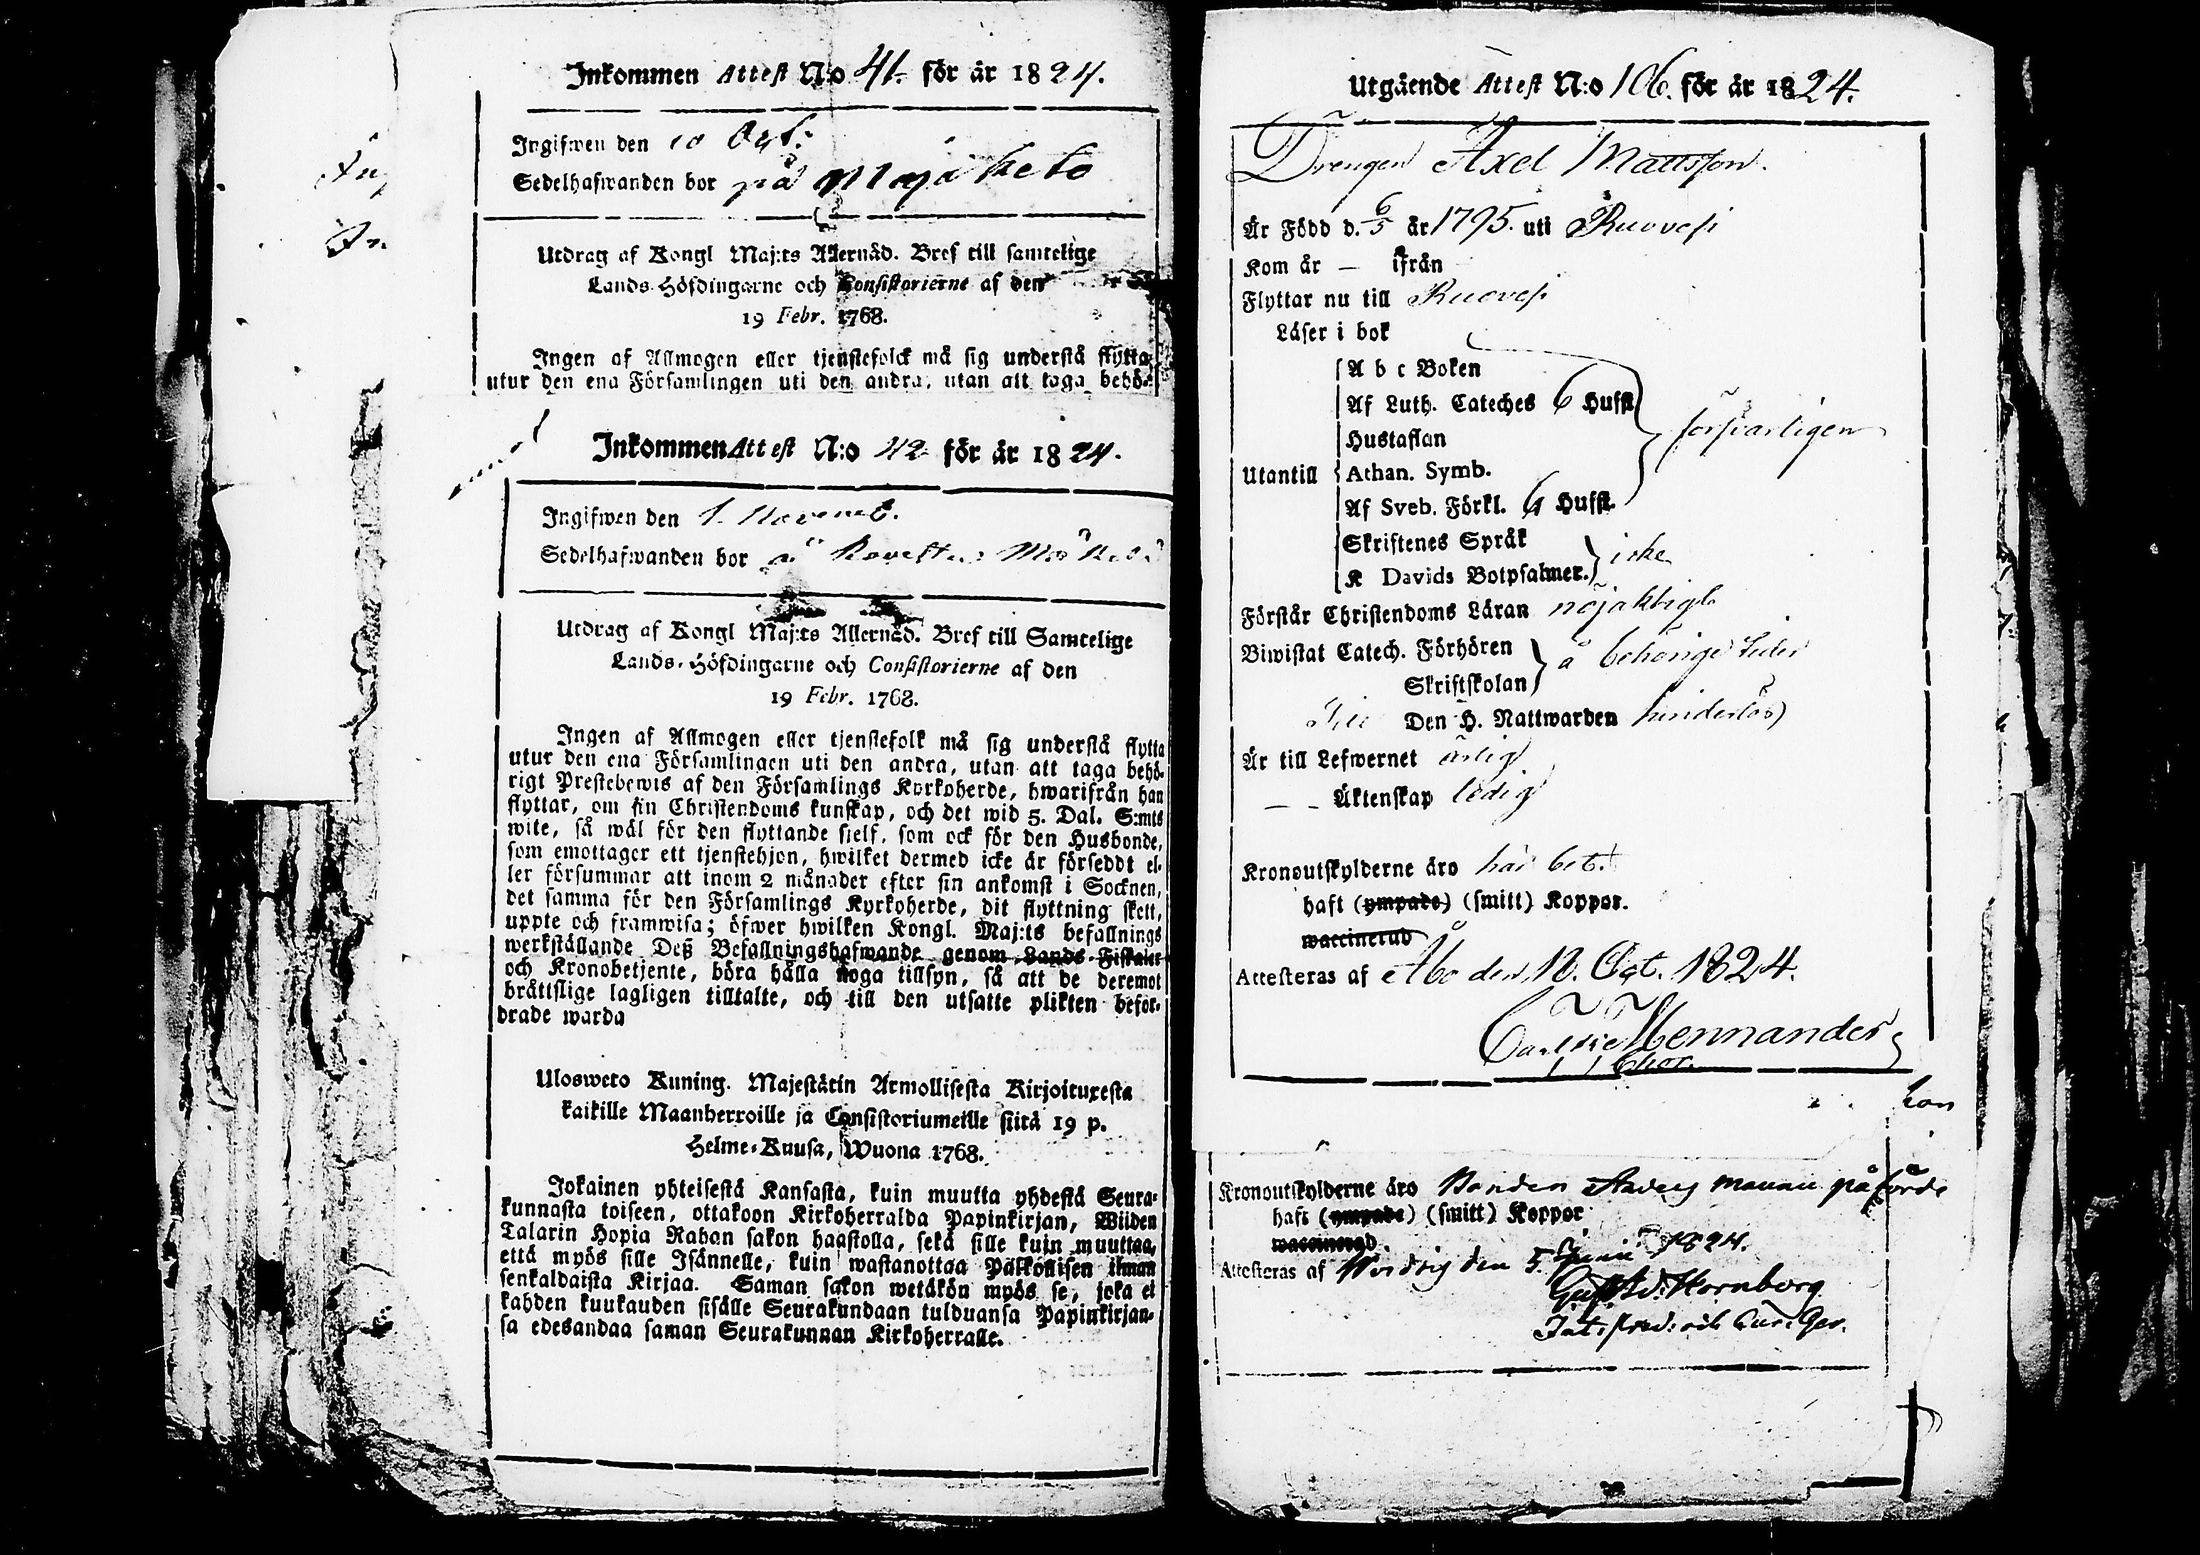 Inkommen Attest N:o 41. för år 1824.
Ingifwen den 10 Oct:
Sedelhafwanden bor på
Utdrag af Kongl Maj:ts Allernåd. Bref till samtelige
Lands-Höfdingarne och Consistorierne af den
19 Febr. 1768.
Ingen af Allmogen eller tjenstefolck må sig understå flytta
utur den ena Församlingen uti den andra, utan att taga behö-
Inkommen Attest N:o 42 för år 1824.
Ingifwen den 1. Novemb.
Sedelhafwanden bor
Utdrag af Kongl Maj:ts Allernåd. Bref till Samtelige
Lands-Höfdingarne och Consistorierne af den
19 Febr. 1768.
Ingen af Allmogen eller tjenstefolk må sig understå flytta
utur den ena Församlingen uti den andra, utan att taga behö-
rigt Prestebewis af den Församlings Kyrkoherde, hwarifrån han
flyttar, om sin Christendoms kunskap, och det wid 5. Dal. S:mts
wite, så wäl för den flyttande sielf, som ock för den Husbonde,
som emottager ett tjenstehjon, hwilket dermed icke är försedt el-
ler försummar att inom 2 månader efter sin ankomst i Socknen,
det samma för den Församlings Kyrkoherde, dit flyttning skett,
uppte och framwisa; öfwer hwilken Kongl. Maj:ts befallnings
werkställande Deß Befallningshafwande genom Lands-Fiskaler
och Kronobetjente, böra hålla noga tillsyn, så att de deremot
bråttslige lagligen tilltalte, och till den utsatte plikten befor-
drade warda
Ulosweto Kuning. Majestätin Armollisesta Kirjoituxesta
kaikille Maanherroille ja Consistoriumeille siitä 19 p.
Helme-Kuusa, Wuona 1768.
Jokainen yhteisestä Kansasta, kuin muutta yhdestä Seura-
kunnasta toiseen, ottakoon Kirkoherralda Papinkirjan, Wiiden
Talarin Hopia Rahan sakon haastolla, sekä sille kuin muuttaa,
että myös sille Isännelle, kuin wastanottaa Palkollisen ilman
senkaldaista Kirjaa. Saman sakon wetäkön myös se, joka ei
kahden kuukauden sisälle Seurakundaan tulduansa Papinkirjan-
sa edesandaa saman Seurakunnan Kirkoherralle.
Utgående Attest N:o 106. för år 1824.
Drengen Axel Mattsson.
Är Född d. 6/5 år 1795. uti Ruovesi
Kom år — ifrån
Flyttar nu till Ruovesi
Läser i bok
A b c Boken
Af Luth. Cateches 6 Hufst.
Hustaflan
försvarligen
Utantill Athan. Symb.
Af Sveb. Förkl. 6 Hufst.
Skriftenes Språk
K Davids Botpsalmer. icke
Förstår Christendoms Läran nöjaktigt
Biwistat Catech. Förhören
å behörige tider
Skriftskolan
Den H. Nattwarden hinderlös
Är till Lefwernet ärlig
— — Äktenskap ledig
Kronoutskylderne äro här bet.
haft (ympade) (smitt) Koppor.
waccinerad
Attesteras af Åbo den 18. Oct. 1824.
Mennander
kan
Kronoutskylderne äro Bonden på förde
haft (ympade) (smitt) Koppor
waccinerad.
Attesteras af den 5. Junii 1824.
Gust. Ad: Hornborg